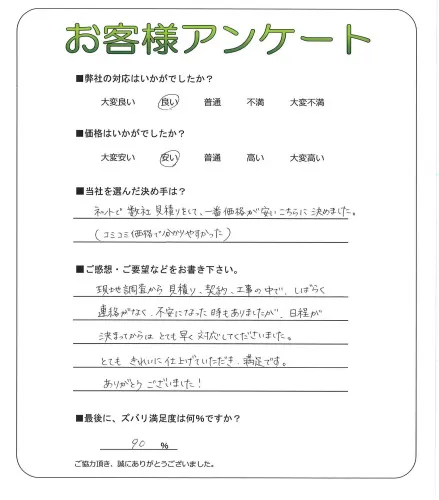 お客様アンケート
■弊社の対応はいかがでしたか？
大変良い 良い 普通 不満 大変不満
■価格はいかがでしたか？
大変安い 安い 普通 高い 大変高い
■当社を選んだ決め手は？
ネットで数社見積りをして、一番価格が安いこちらに決めました。
（コミコミ価格で分かりやすかった）
■ご感想・ご要望などをお書き下さい。
現地調査から見積り、契約、工事の中で、しばらく
連絡がなく、不安になった時もありましたが、日程が
決まってからはとても早く対応してくださいました。
とてもきれいに仕上げていただき、満足です。
ありがとうございました！
■最後に、ズバリ満足度は何％ですか？
90 ％
ご協力頂き、誠にありがとうございました。